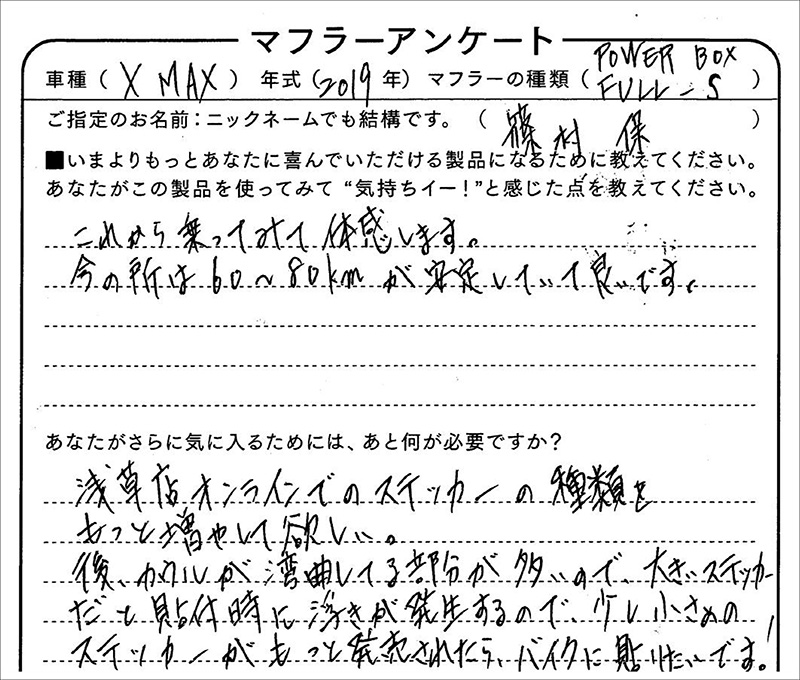 マフラーアンケート
車種（X MAX）年式（2019年）マフラーの種類（POWER BOX FULL-S）
ご指定のお名前：ニックネームでも結構です。（篠村 保）
■いまよりもっとあなたに喜んでいただける製品になるために教えてください。
あなたがこの製品を使ってみて“気持ちイー！”と感じた点を教えてください。
これから乗ってみて体感します。
今の所は60～80kmが安定していて良いです。
あなたがさらに気に入るためには、あと何が必要ですか？
浅草店オンラインでのステッカーの種類を
もっと増やして欲しい。
後、カウルが湾曲してる部分が多いので、大きいステッカー
だと貼付時に浮きが発生するので、少し小さめの
ステッカーがもっと発売されたら、バイクに貼りたいです！